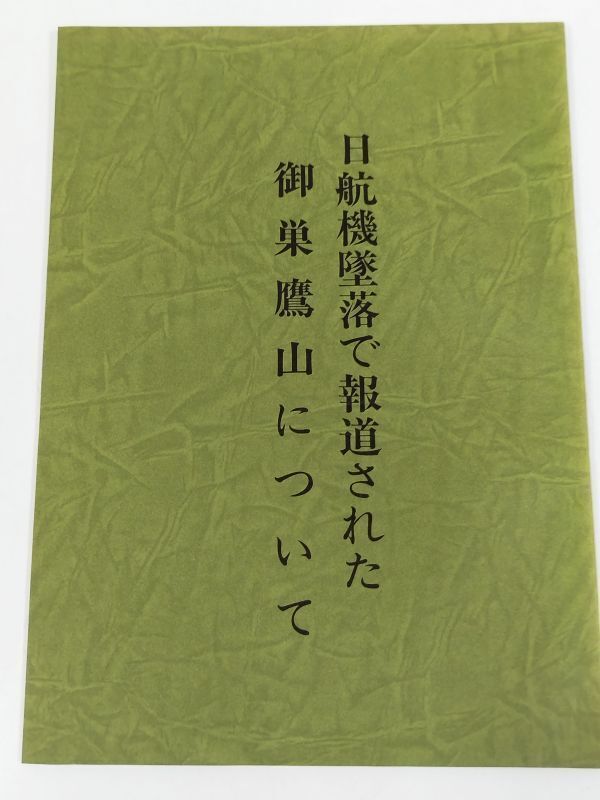 日航機墜落で報道された
御巣鷹山について